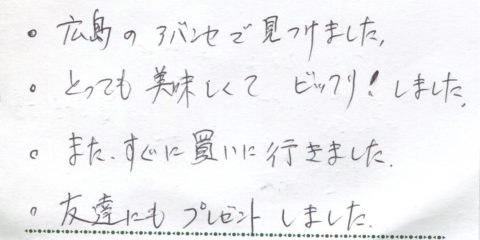 • 広島のアバンセで見つけました。
• とっても美味しくて ビックリ！しました。
• また、すぐに買いに行きました。
• 友達にも プレゼント しました。